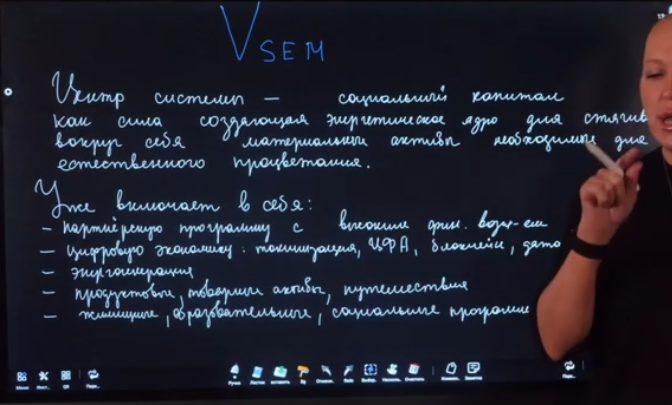 VSEM
Центр системы — социальный капитал
как сила создающая энергетическое ядро для стягив
вокруг себя материальные активы необходимые для
естественного процветания.
Уже включает в себя:
— партнёрскую программу с высоким фин. возн-ем
— цифровую экономику: токинизация, ЦФА, блокчейн, дата
— энергогенерация
— продуктовые, товарные активы, путешествия
— жилищные, образовательные, социальные программы